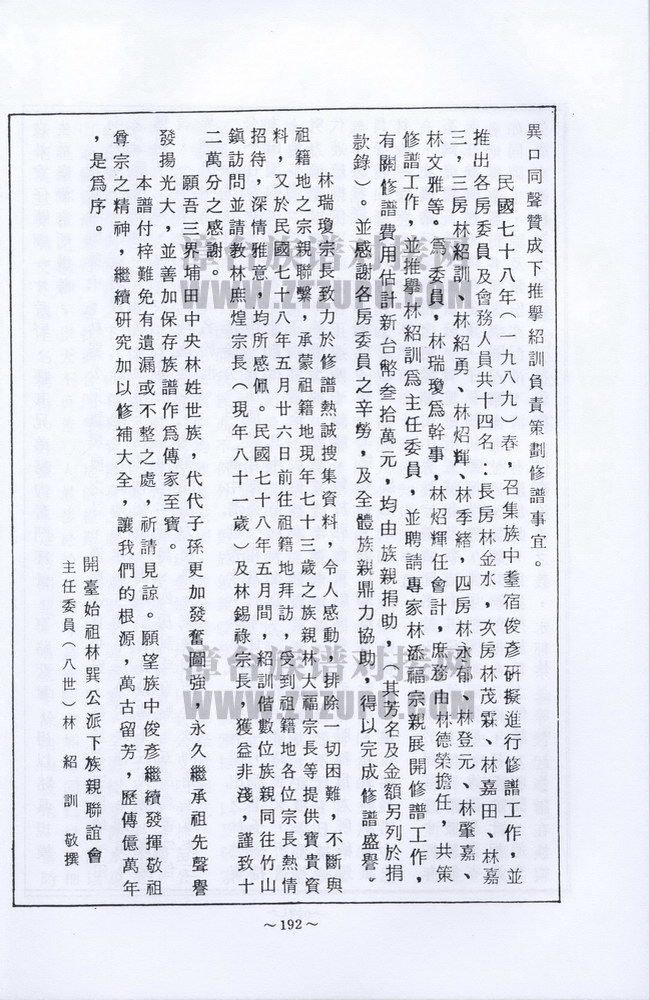 異口同聲贊成下推舉紹訓負責策劃修譜事宜。
民國七十八年（一九八九）春，召集族中耆宿俊彥研擬進行修譜工作，並
推出各房委員及會務人員共十四名：長房林金水，次房林茂霖、林嘉田、林嘉
三，三房林紹訓、林紹勇、林炤輝、林季緒，四房林永郁、林登元、林肇嘉、
林文雅等。爲委員，林瑞瓊爲幹事，林炤輝任會計，庶務由林德榮擔任，共策
修譜工作，並推舉林紹訓爲主任委員，並聘請專家林添福宗親展開修譜工作，
有關修譜費用估計新台幣叁拾萬元，均由族親捐助，（其芳名及金額另列於捐
款錄）。並感謝各房委員之辛勞，及全體族親鼎力協助，得以完成修譜盛譽。
林瑞瓊宗長致力於修譜熱誠搜集資料，令人感動，排除一切困難，不斷與
祖籍地之宗親聯繫，承蒙祖籍地現年七十三歲之族親文福宗長等提供寶貴資
料，又於民國七十八年五月廿六日前往祖籍地拜訪，受到祖籍地各位宗長熱情
招待，深情雅意，均所感佩。民國七十八年五月間，紹訓偕數位族親同往竹山
鎭訪問並請教林庶煌宗長（現年八十　歲）及林錫祿宗長，獲益非淺，謹致十
二萬分之感謝。
願吾三界埔田中央林姓世族，代代子孫更加發奮圖強，永久繼承祖先聲譽
發揚光大，並善加保存族譜作爲傳家至寶。
本譜付梓難免有遺漏或不整之處，祈請見諒。願望族中俊彥繼續發揮敬祖
尊宗之精神，繼續研究加以修補大全，讓我們的根源，萬古留芳，歷傳億萬年
，是爲序。
開臺始祖林巽公派下族親聯誼會
主任委員（八世）林　紹　訓　敬撰
～192～
漳台族谱对接网
WWW.ZTZUPU.COM
漳台族谱对接网
WWW.ZTZUPU.COM